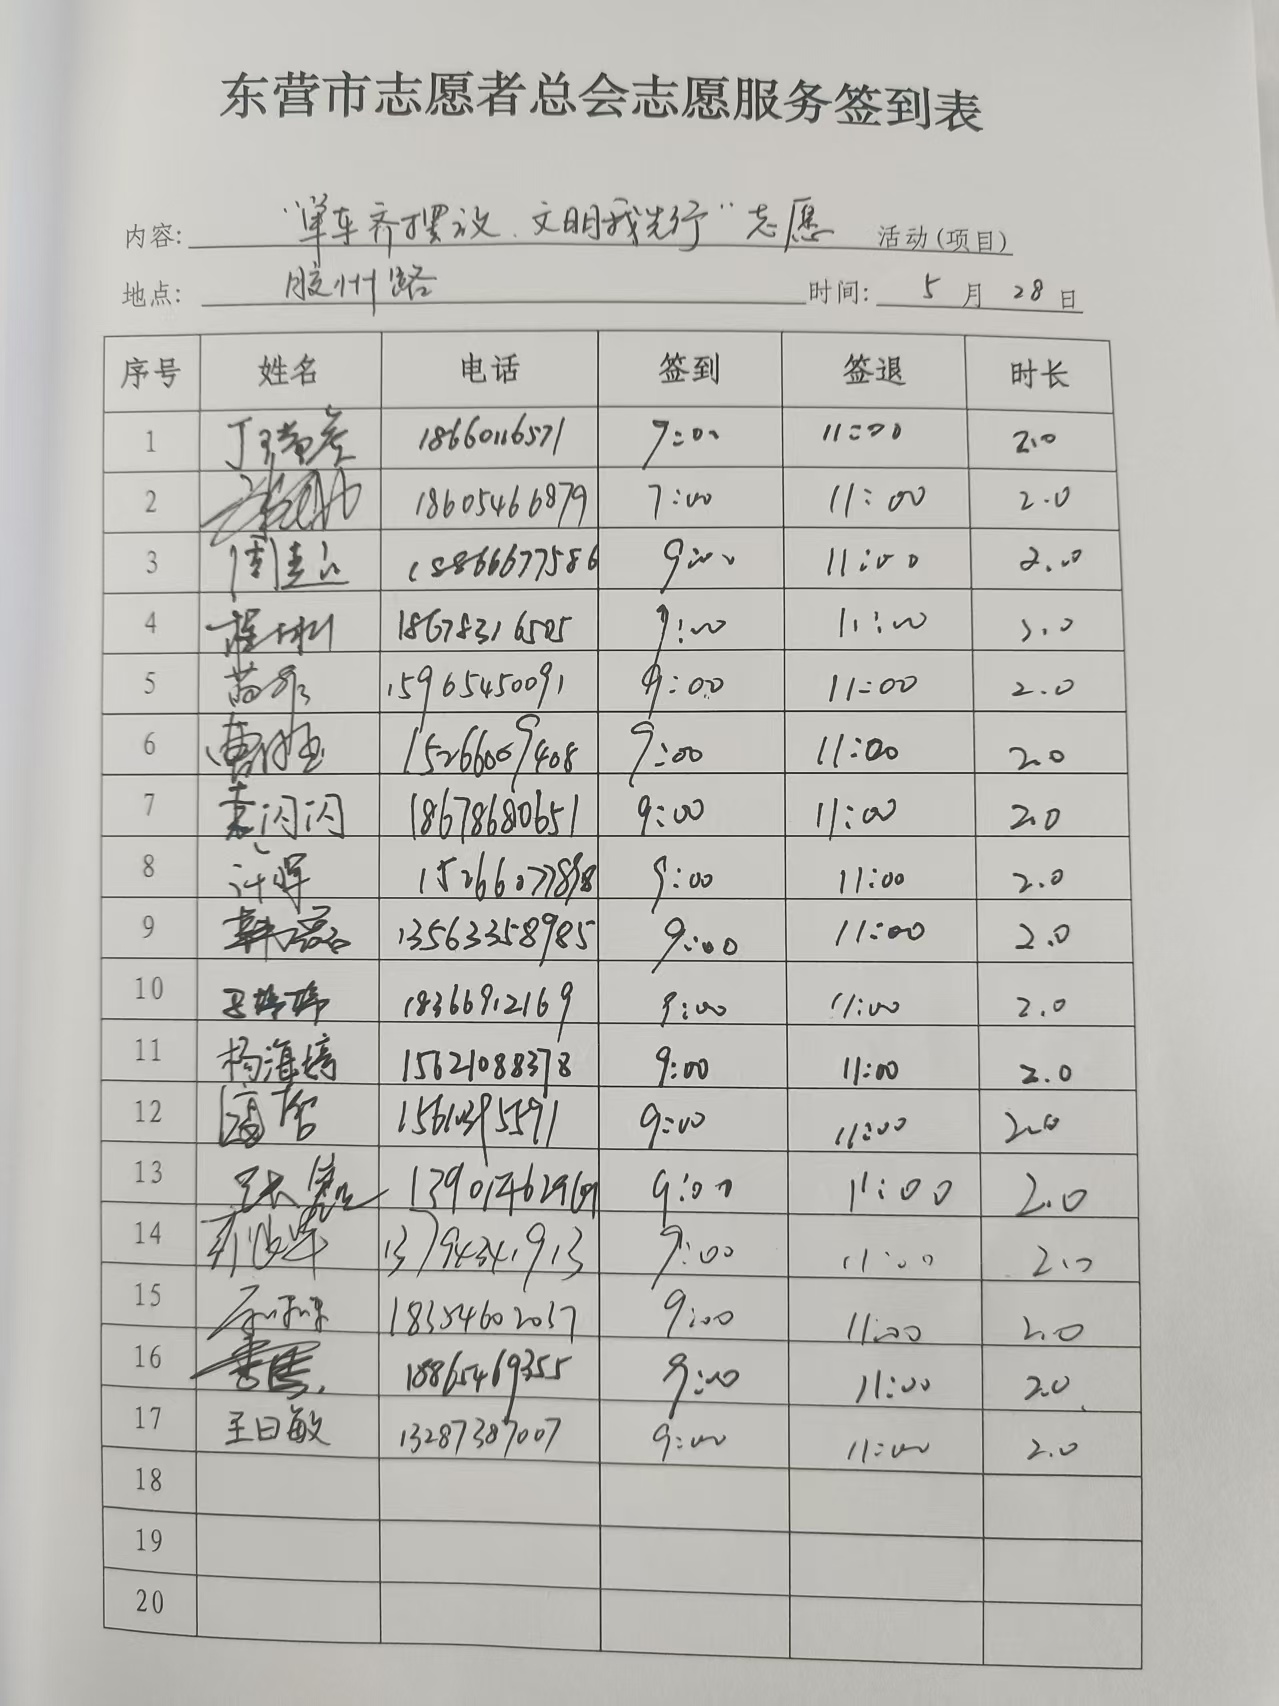 东营市志愿者总会志愿服务签到表
内容: "单车齐摆放、文明我先行"志愿 活动(项目)
地点: 胶州路 时间: 5 月 28 日
序号 姓名 电话 签到 签退 时长
1 18660116571 9:00 11:00 2.0
2 18605466879 9:00 11:00 2.0
3 18866677586 9:00 11:00 2.0
4 18678316505 9:00 11:00 2.0
5 15965450091 9:00 11:00 2.0
6 15266009408 9:00 11:00 2.0
7 袁闪闪 18678680651 9:00 11:00 2.0
8 许晖 15266077898 9:00 11:00 2.0
9 13563358985 9:00 11:00 2.0
10 王婷婷 18366912169 9:00 11:00 2.0
11 杨海婷 15621088378 9:00 11:00 2.0
12 9:00 11:00 2.0
13 9:00 11:00 2.0
14 13794341913 9:00 11:00 2.0
15 18354602037 9:00 11:00 2.0
16 18865469355 9:00 11:00 2.0
17 王曰敏 13287387007 9:00 11:00 2.0
18
19
20